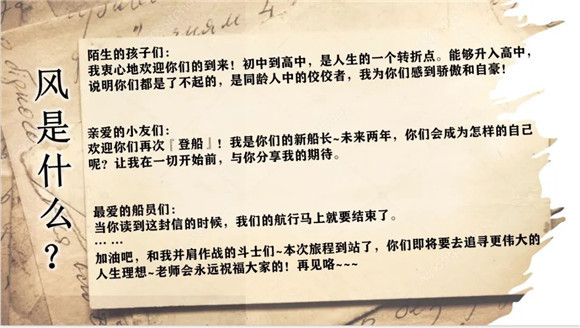 风是什么？
陌生的孩子们：
我衷心地欢迎你们的到来！初中到高中，是人生的一个转折点。能够升入高中，
说明你们都是了不起的，是同龄人中的佼佼者，我为你们感到骄傲和自豪！
亲爱的小友们：
欢迎你们再次『登船』！我是你们的新船长~未来两年，你们会成为怎样的自己
呢？让我在一切开始前，与你分享我的期待。
最爱的船员们：
当你读到这封信的时候，我们的航行马上就要结束了。
… …
加油吧，和我并肩作战的斗士们~本次旅程到站了，你们即将要去追寻更伟大的
人生理想~老师会永远祝福大家的！再见咯~~~